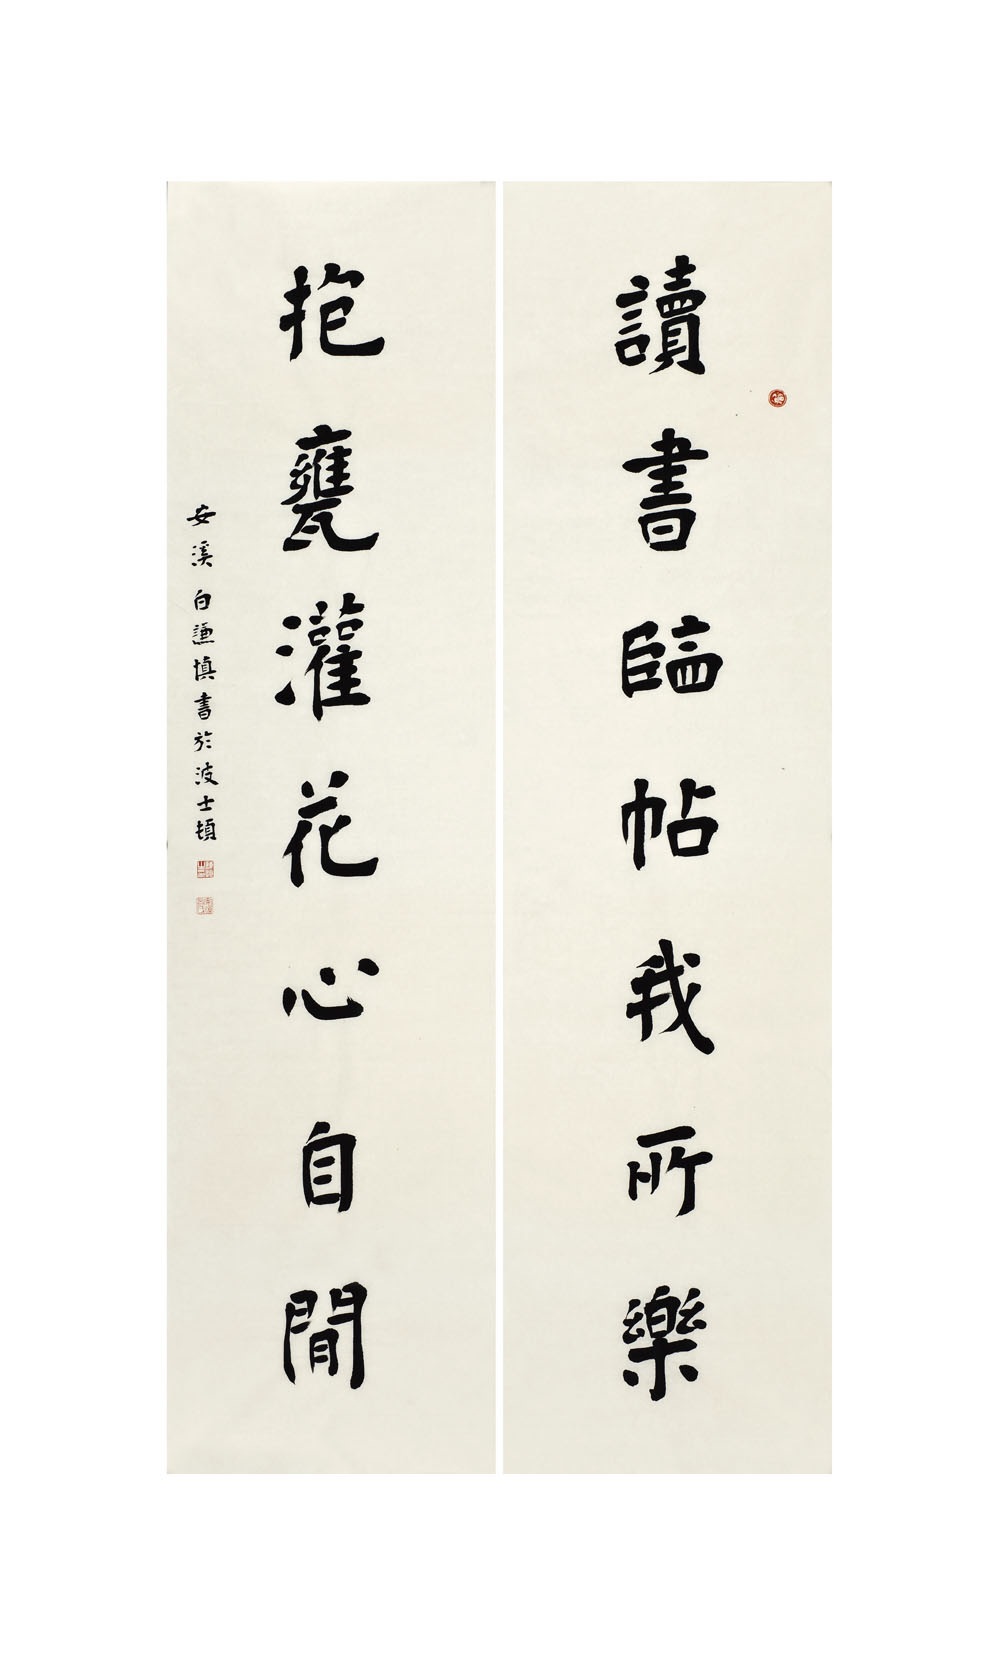 讀書臨帖我所樂
抱甕灌花心自閒
安溪白謙慎書於波士頓